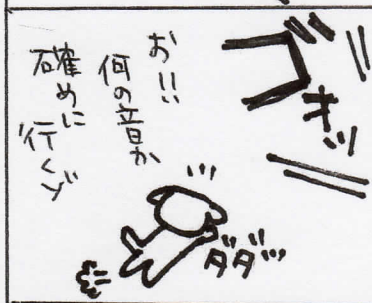 ゴキッ
お!!
何の音か
確めに
行くゾ
ダダッ